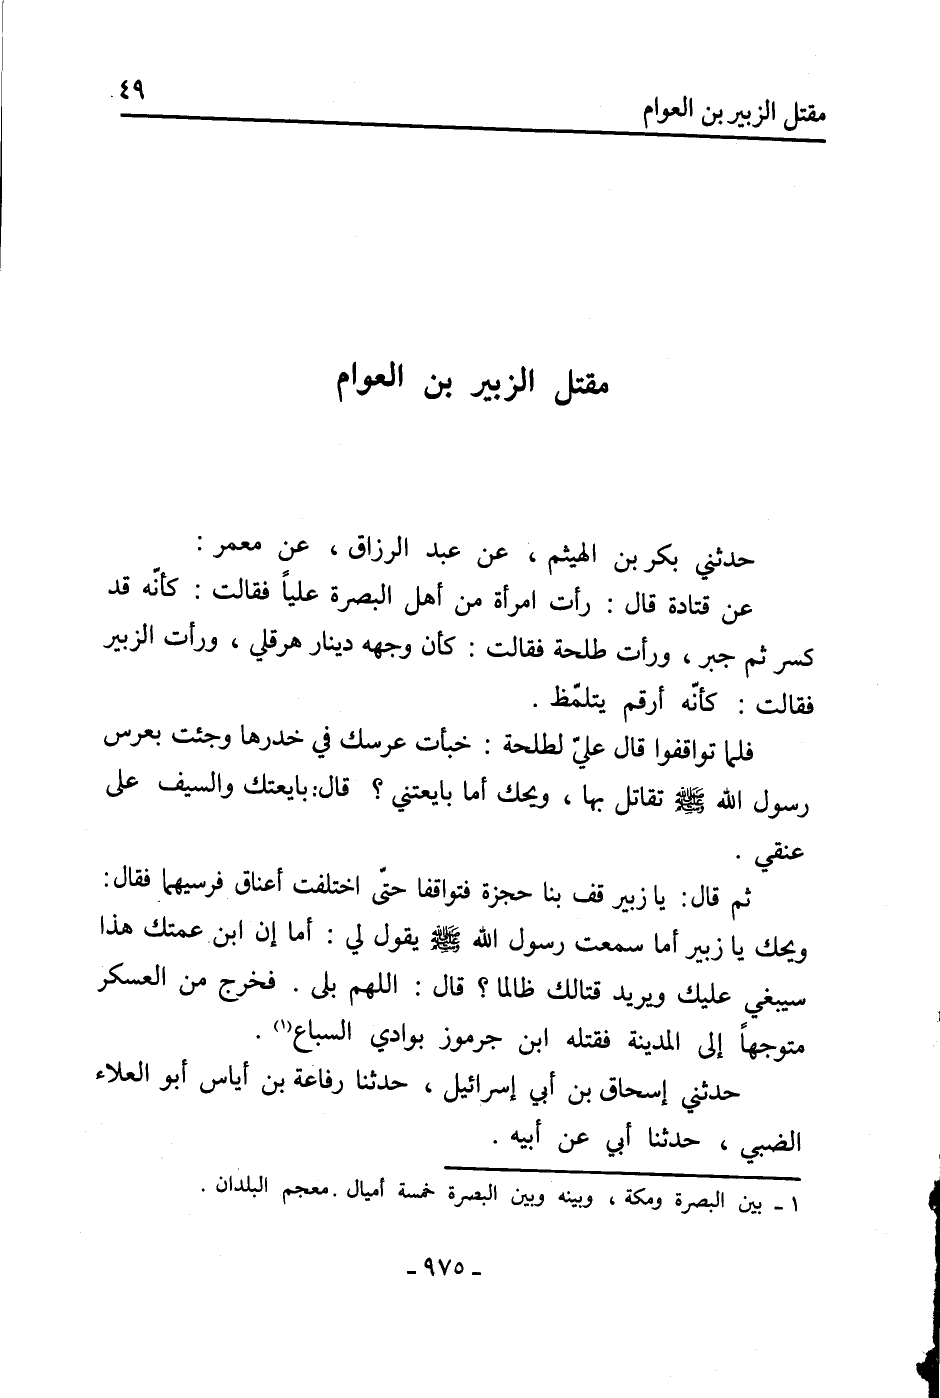 مقتل الزبير بن العوام
٤٩
مقتل الزبير بن العوام
حدثني بكر بن الهيثم ، عن عبد الرزاق ، عن معمر :
عن قتادة قال : رأت امرأة من أهل البصرة علياً فقالت : كأنّه قد
كسر ثم جبر ، ورأت طلحة فقالت : كأن وجهه دينار هرقلي ، ورأت الزبير
فقالت : كأنّه أرقم يتلمّظ .
فلما تواقفوا قال عليّ لطلحة : خبأت عرسك في خدرها وجئت بعرس
رسول الله ﷺ تقاتل بها ، ويحك أما بايعتني ؟ قال: بايعتك والسيف على
عنقي .
ثم قال: يا زبير قف بنا حجزة فتواقفا حتّى اختلفت أعناق فرسيهما فقال:
ويحك يا زبير أما سمعت رسول الله ﷺ يقول لي : أما إن ابن عمتك هذا
سيبغي عليك ويريد قتالك ظالما ؟ قال : اللهم بلى . فخرج من العسكر
متوجهاً إلى المدينة فقتله ابن جرموز بوادي السباع(١) .
حدثني إسحاق بن أبي إسرائيل ، حدثنا رفاعة بن أياس أبو العلاء
الضبي ، حدثنا أبي عن أبيه .
١ - بين البصرة ومكة ، وبينه وبين البصرة خمسة أميال . معجم البلدان .
- ٩٧٥ -